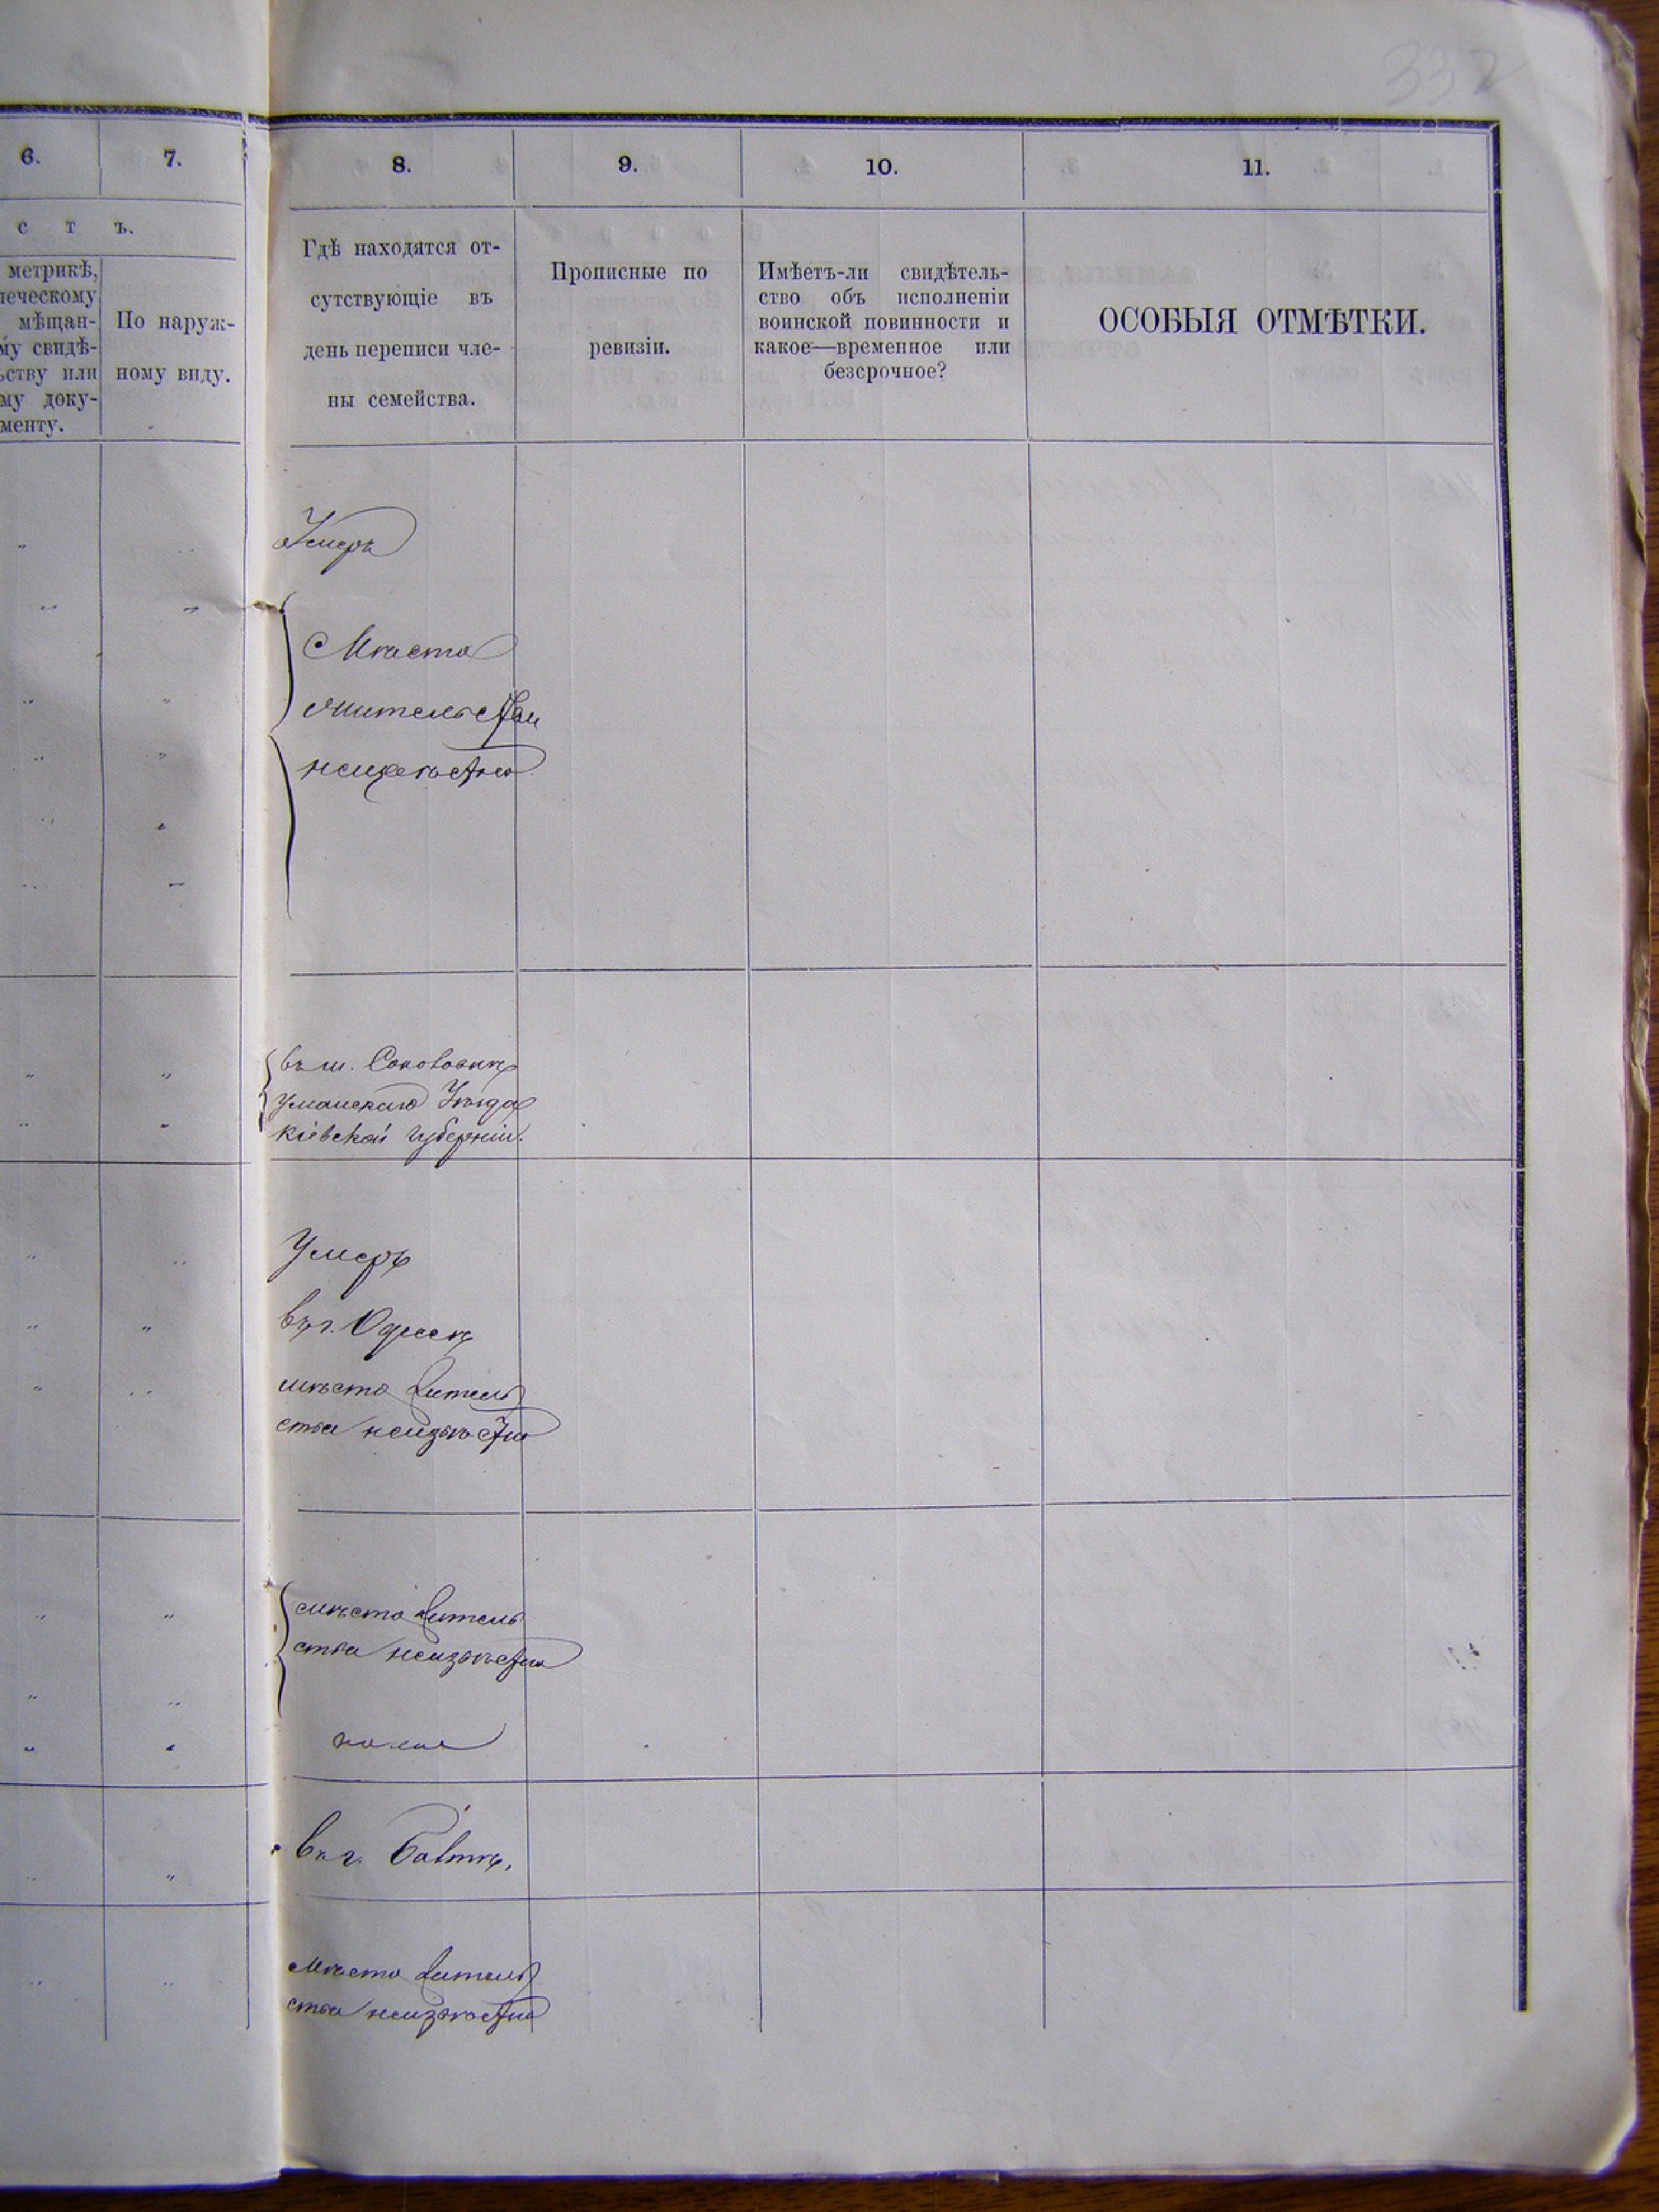 332
6.
7.
8.
9.
10.
11.
с т ъ.
метрикѣ,
ческому
мѣщан-
му свидѣ-
ству или
му доку-
менту.
По наруж-
ному виду.
Гдѣ находятся от-
сутствующіе въ
день переписи чле-
ны семейства.
Прописные по
ревизіи.
Имѣетъ-ли свидѣтель-
ство объ исполненіи
воинской повинности и
какое—временное или
безсрочное?
ОСОБЫЯ ОТМѢТКИ.
Умеръ
Мѣсто
жительства
неизвѣстно
въ м. Соколовкѣ
Уманскаго Уѣзда
Кіевской губерніи.
Умеръ
въ г. Одессѣ
мѣсто житель
ства неизвѣстно
мѣсто житель
ства неизвѣстно
въ г. Балтѣ.
Мѣсто житель
ства неизвѣстно